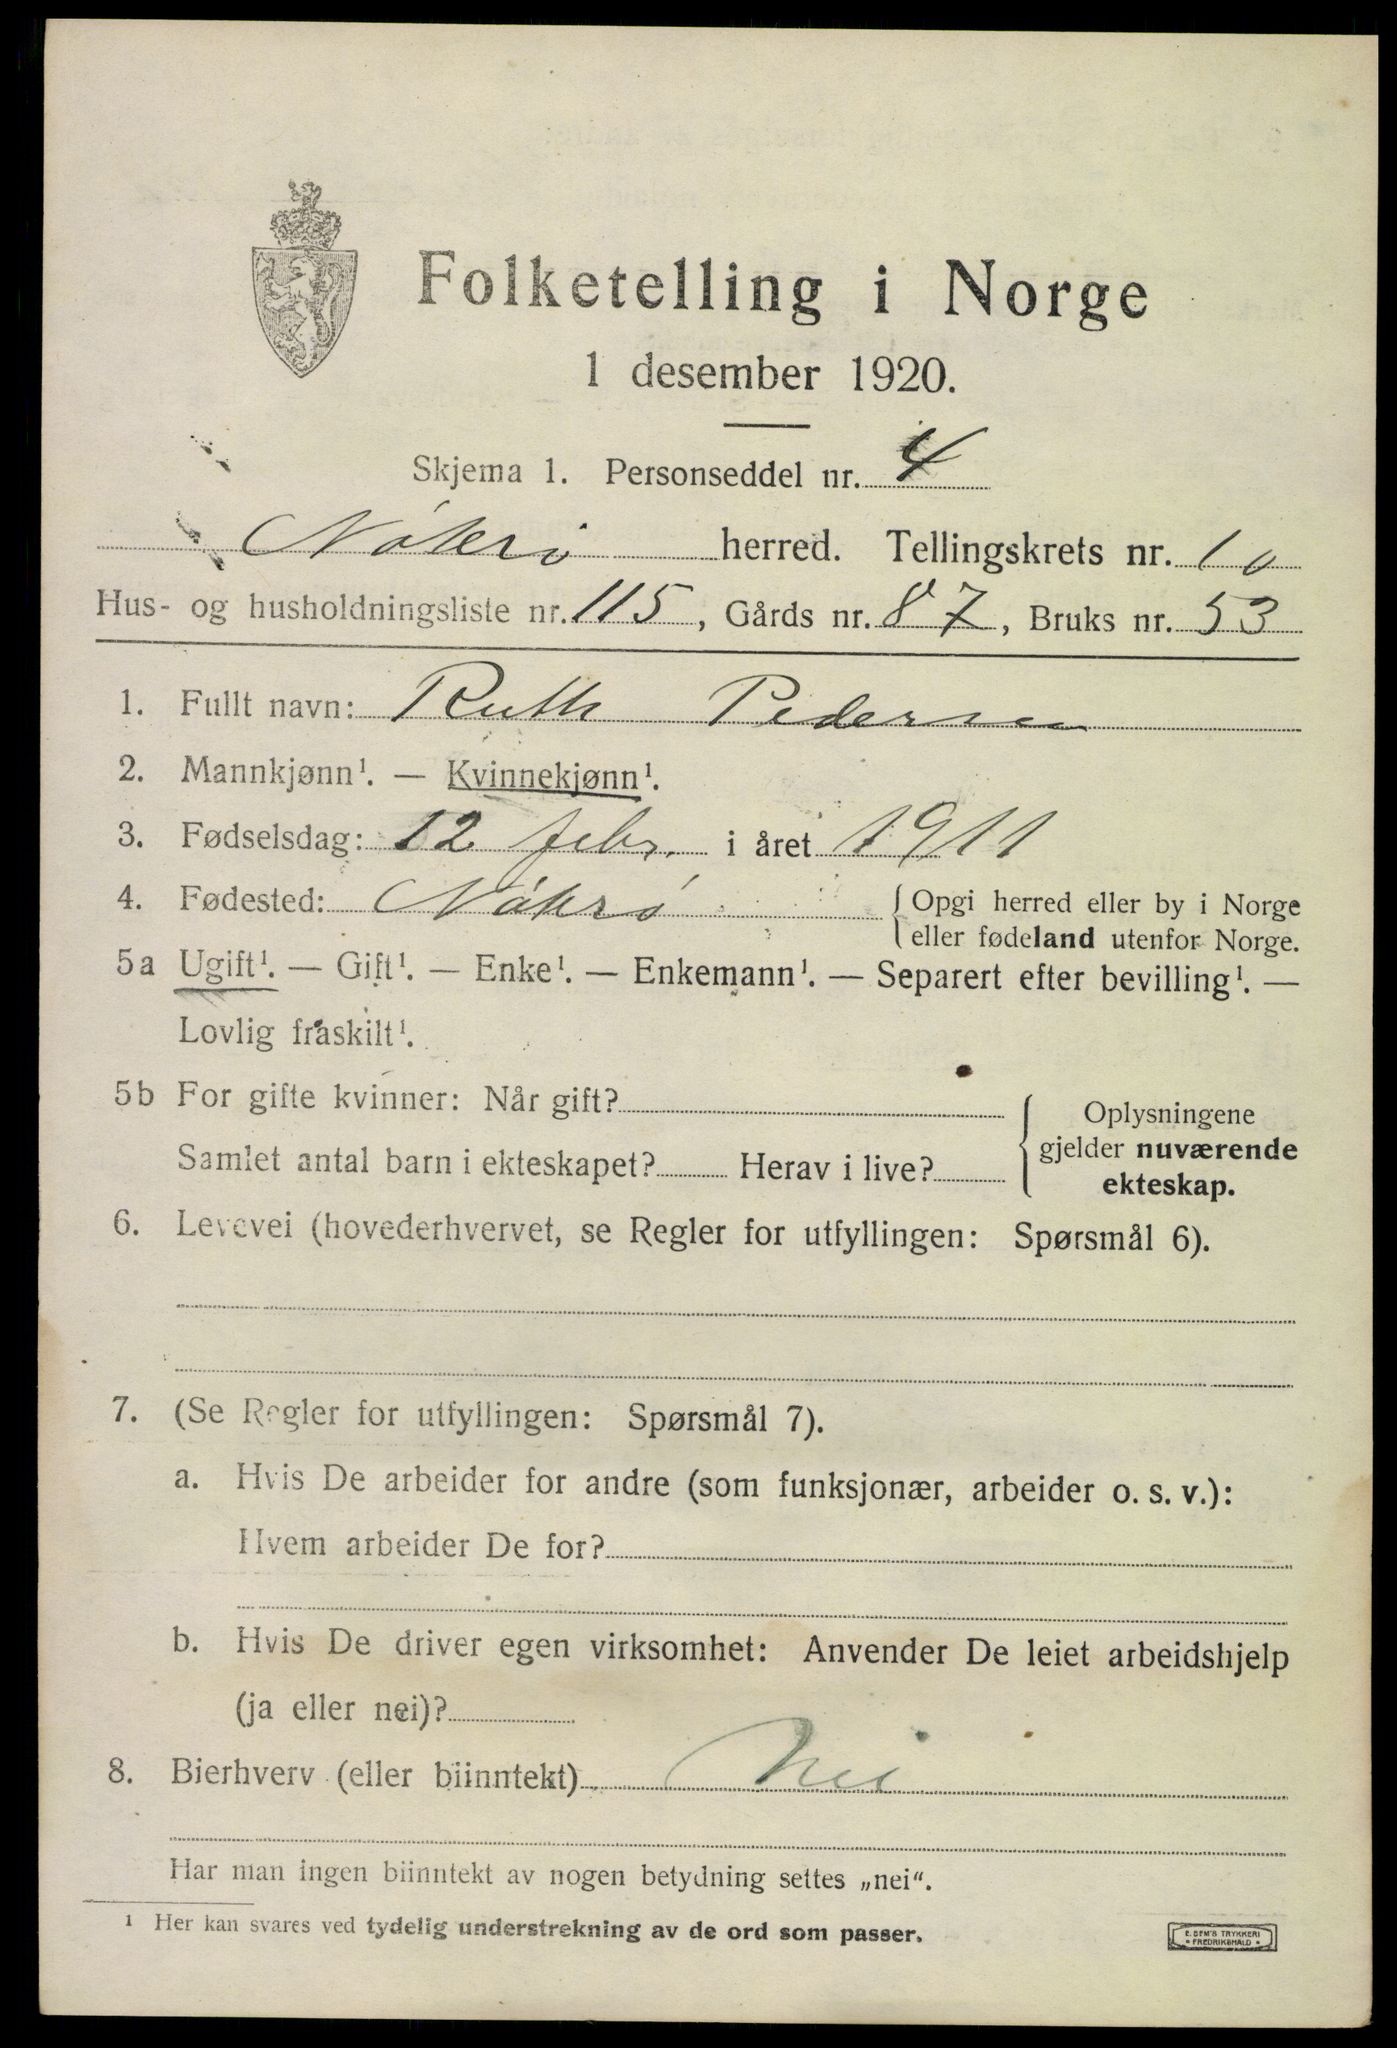 Folketelling i Norge
1 desember 1920.
Skjema 1. Personseddel nr. 4
Nøterø herred. Tellingskrets nr. 10
Hus- og husholdningsliste nr. 115, Gårds nr. 87, Bruks nr. 53
1. Fullt navn: Ruth Pedersen
2. Mannkjønn¹. — Kvinnekjønn¹.
3. Fødselsdag: 12 febr. i året 1911
4. Fødested: Nøterø { Opgi herred eller by i Norge
eller fødeland utenfor Norge.
5a Ugift¹. — Gift¹. — Enke¹. — Enkemann¹. — Separert efter bevilling¹. —
Lovlig fraskilt¹.
5b For gifte kvinner: Når gift?
Samlet antal barn i ekteskapet? Herav i live?
{ Oplysningene
gjelder nuværende
ekteskap.
6. Levevei (hovederhvervet, se Regler for utfyllingen: Spørsmål 6).
7. (Se Regler for utfyllingen: Spørsmål 7).
a. Hvis De arbeider for andre (som funksjonær, arbeider o. s. v.):
Hvem arbeider De for?
b. Hvis De driver egen virksomhet: Anvender De leiet arbeidshjelp
(ja eller nei)?
8. Bierhverv (eller biinntekt) Nei
Har man ingen biinntekt av nogen betydning settes „nei“.
¹ Her kan svares ved tydelig understrekning av de ord som passer.
E. SEM'S TRYKKERI
FREDRIKSHALD